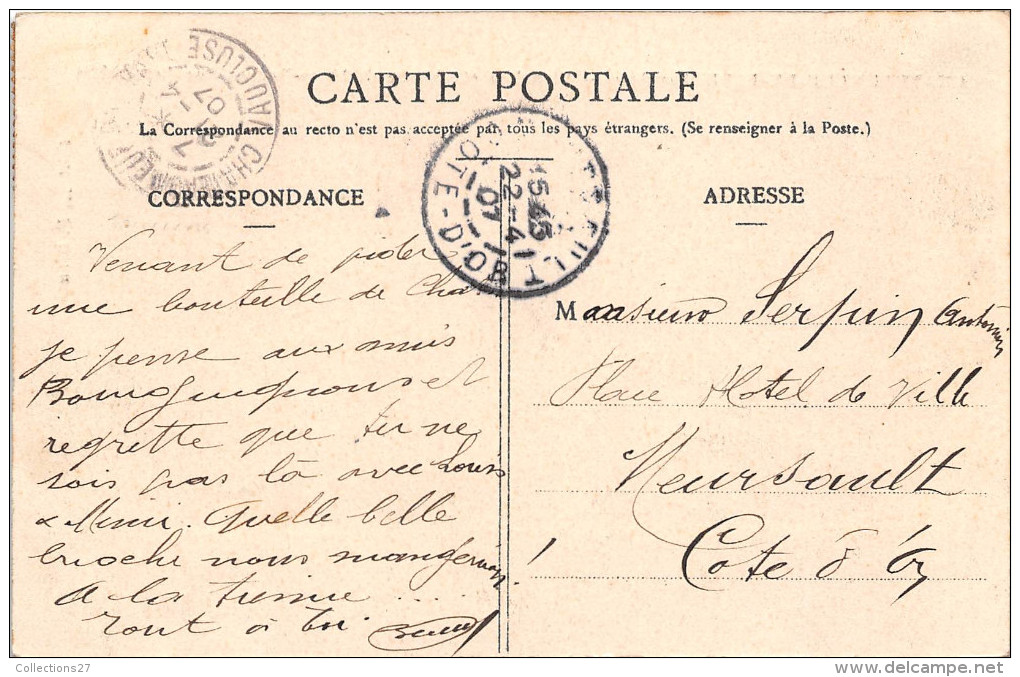 CARTE POSTALE
La Correspondance au recto n'est pas acceptée par tous les pays étrangers. (Se renseigner à la Poste.)
CORRESPONDANCE
ADRESSE
VAUCLUSE
CHATEAUNEUF
07
15 45
22 - 4
07
COTE-D'OR
Venant de vider
une bouteille de
je pense aux amis
Bourguignons et
regrette que tu ne
sois pas là avec Louis
& Mimi. Quelle belle
brioche nous mangerions!
A la tienne ....
Tout à toi.
Monsieur Serpin Antonin
Place Hotel de Ville
Meursault
Cote d'Or
Collections27
delcampe.net